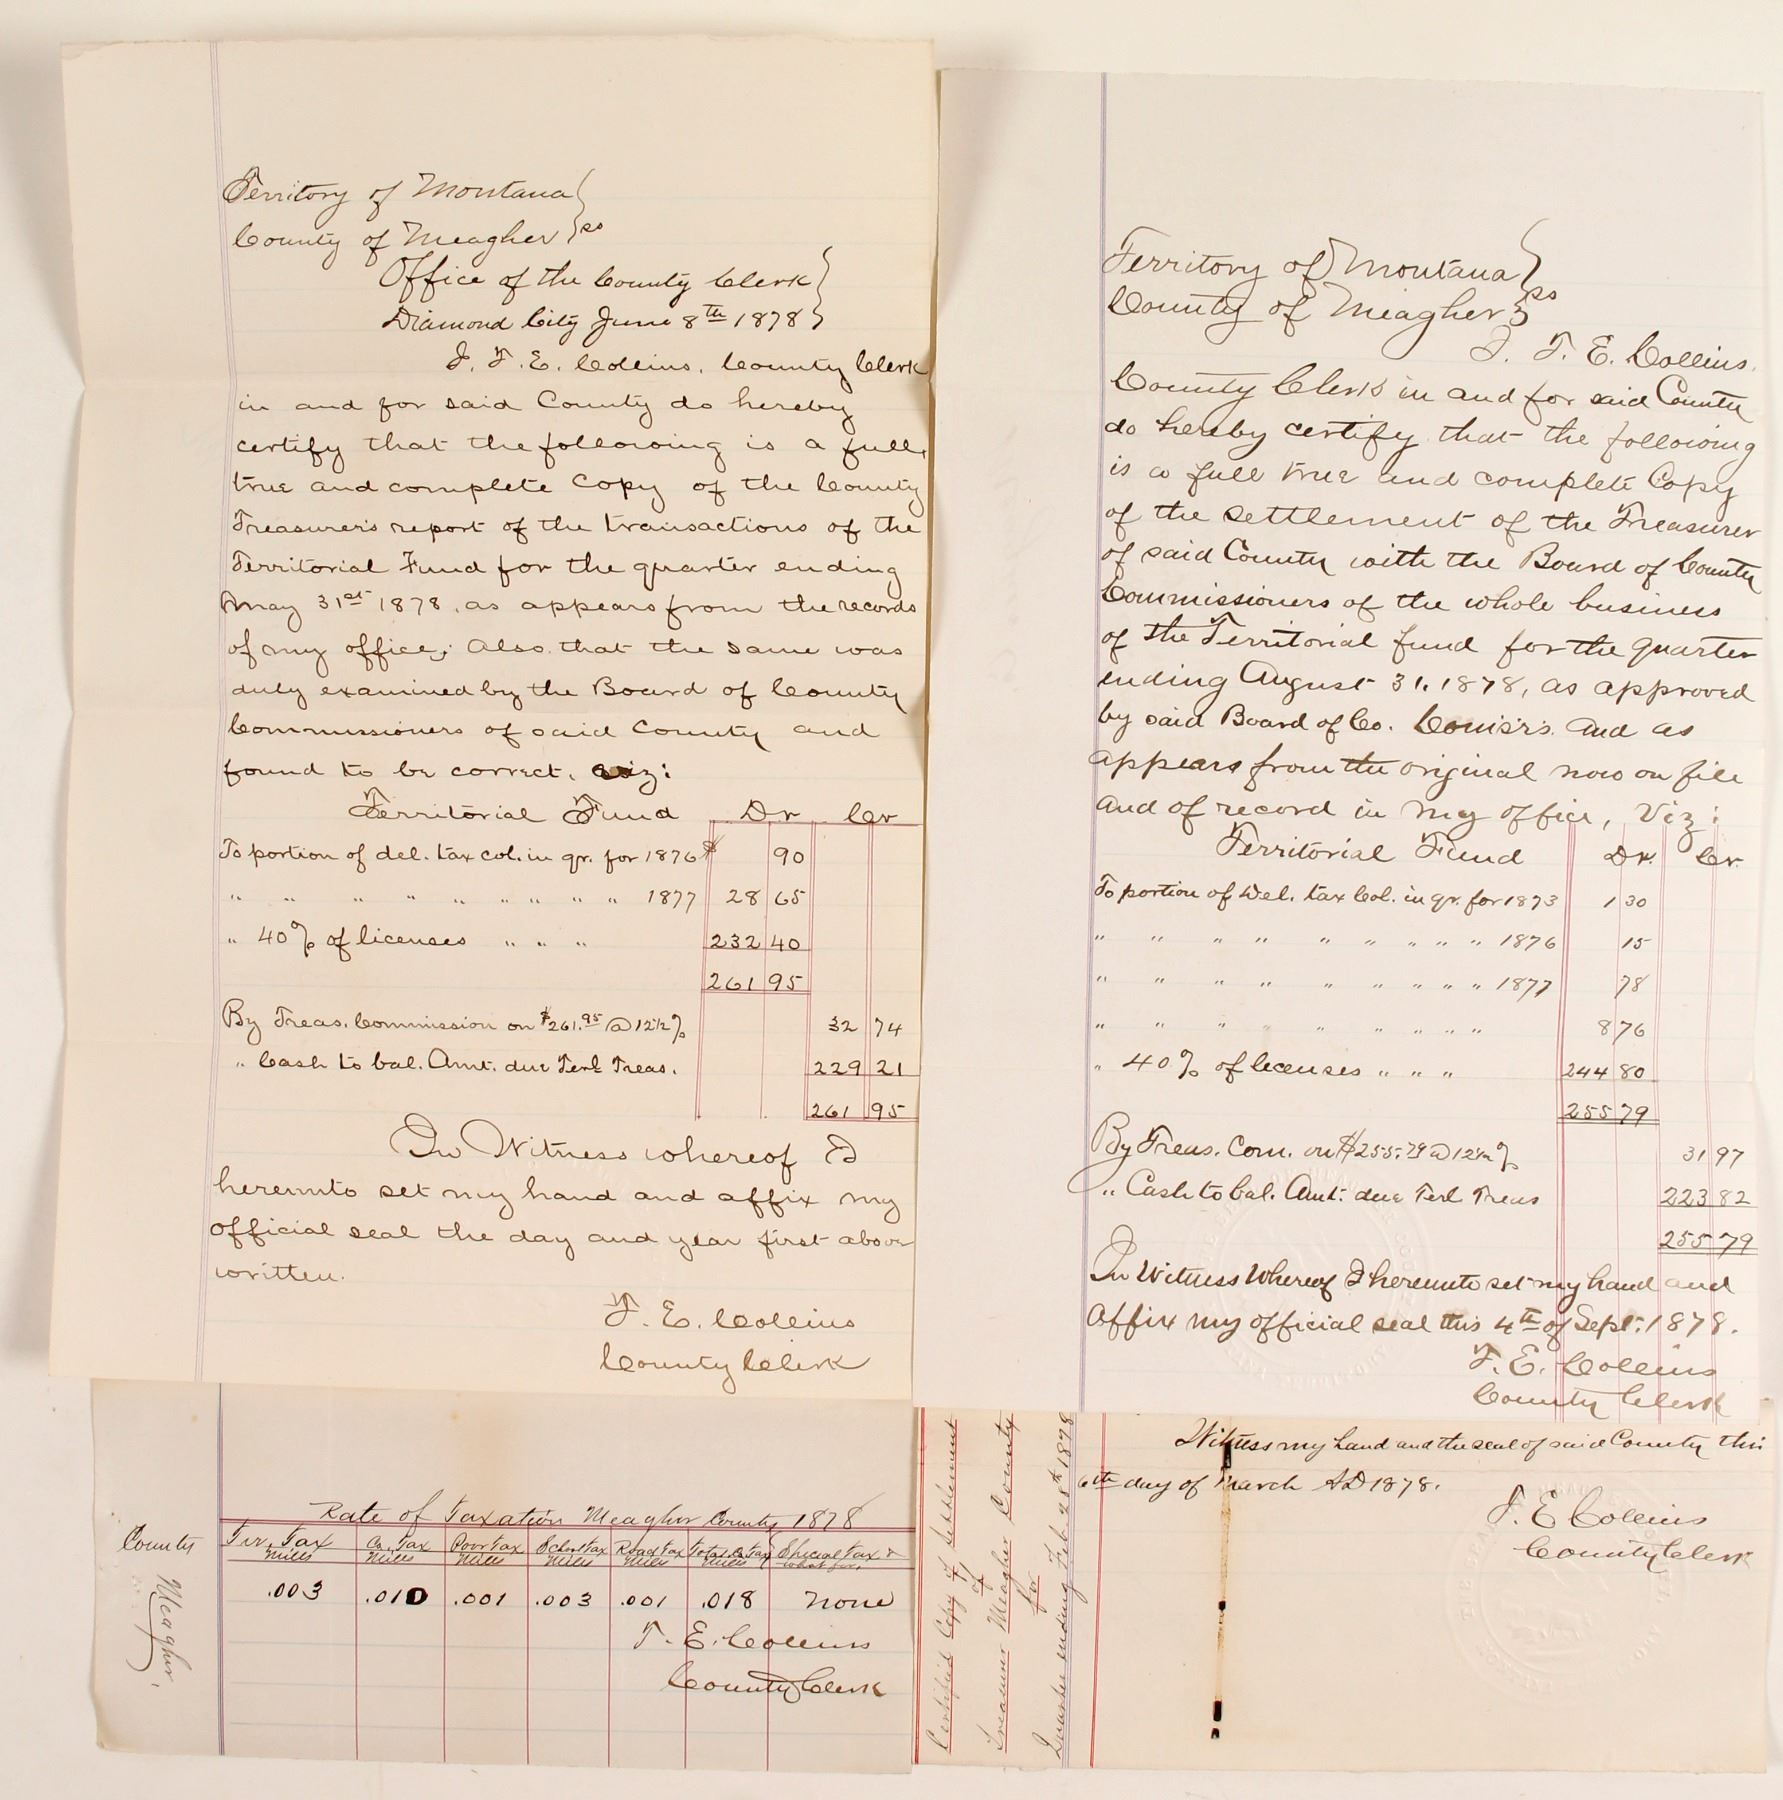 Territory of Montana }
County of Meagher } ss
Office of the County Clerk }
Diamond City June 8th 1878 }
I, T. E. Collins, County Clerk
in and for said County do hereby
certify that the following is a full,
true and complete Copy of the County
Treasurer's report of the transactions of the
Territorial Fund for the quarter ending
May 31st 1878, as appears from the records
of my office; Also that the same was
duly examined by the Board of County
Commissioners of said County and
found to be correct, viz:
Territorial Fund Dr Cr
To portion of del. tax col. in qr. for 1876 $ 90
" " " " " " " " " 1877 28 65
" 40% of licenses " " " 232 40
261 95
By Treas. Commission on $261.95 @ 12½% 32 74
" Cash to bal. Amt. due Terl Treas. 229 21
261 95
In Witness whereof I
hereunto set my hand and affix my
official seal the day and year first above
written.
T. E. Collins
County Clerk
Territory of Montana }
County of Meagher } ss
I, T. E. Collins,
County Clerk in and for said County
do hereby certify that the following
is a full true and complete Copy
of the settlement of the Treasurer
of said County with the Board of County
Commissioners of the whole business
of the Territorial fund for the quarter
ending August 31, 1878, as approved
by said Board of Co. Comis'rs. and as
appears from the original now on file
and of record in my office, Viz:
Territorial Fund Dr. Cr.
To portion of Del. tax Col. in qr. for 1873 1 30
" " " " " " " " " 1876 15
" " " " " " " " " 1877 78
" " " " " " " " " 8 76
" 40% of licenses " " " 244 80
255 79
By Treas. Com. on $255.79 @ 12½% 31 97
" Cash to bal. Amt. due Terl Treas 223 82
255 79
In Witness Whereof I hereunto set my hand and
Affix my official seal this 4th of Sept. 1878.
T. E. Collins
County Clerk
County
Meagher.
Rate of Taxation Meagher County 1878
Ter. Tax mills Co. Tax mills Poor tax mills School tax mills Road tax mills Total Co Tax mills Special tax & what for.
.003 .010 .001 .003 .001 .018 none
T. E. Collins
County Clerk
Certified Copy of Settlement
of
Treasurer Meagher County
for
Quarter ending Feb 28th 1878
Witness my hand and the seal of said County this
6th day of March AD 1878.
T. E. Collins
County Clerk